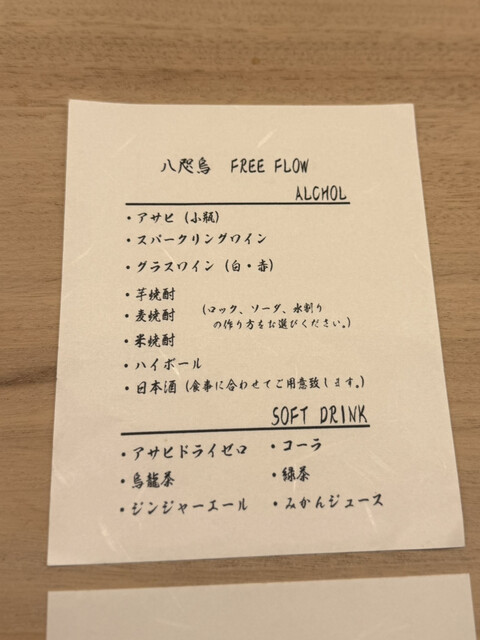 八咫烏 FREE FLOW
ALCHOL
・アサヒ（小瓶）
・スパークリングワイン
・グラスワイン（白・赤）
・芋焼酎
・麦焼酎 （ロック、ソーダ、水割り
の作り方をお選びください。）
・米焼酎
・ハイボール
・日本酒（食事に合わせてご用意致します。）
SOFT DRINK
・アサヒドライゼロ ・コーラ
・烏龍茶 ・緑茶
・ジンジャーエール ・みかんジュース